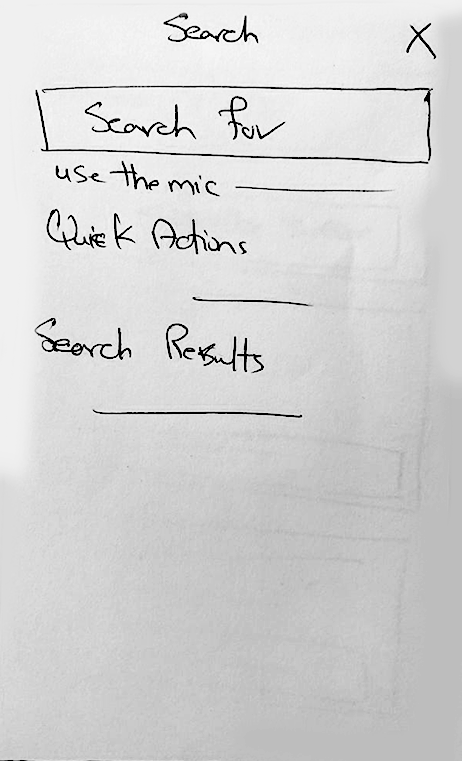 Search X
Search for
use the mic
Quick Actions
Search Results